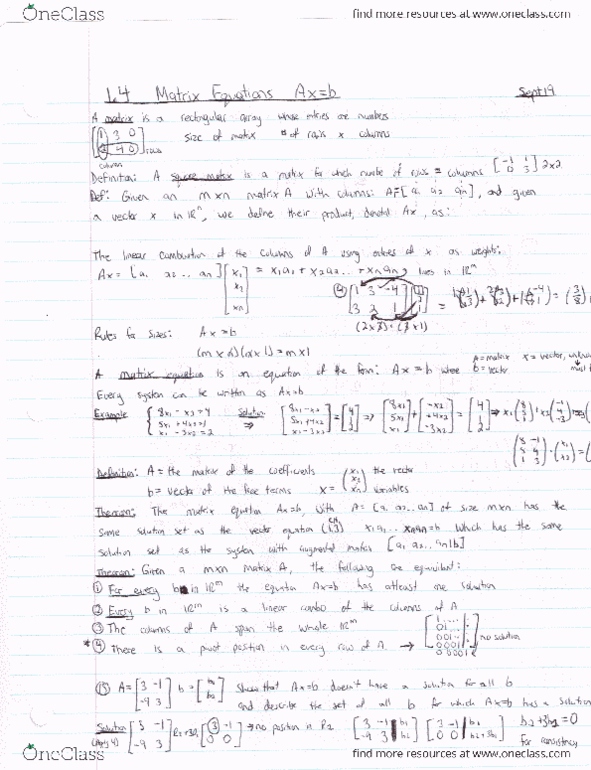 OneClass
find more resources at www.oneclass.com
1.4 Matrix Equations Ax=b Sept 19
A matrix is a rectangular array whose entries are numbers
[1 3 0] size of matrix # of rows x columns
[2 4 0] rows
column
Definition: A square matrix is a matrix for which number of rows = columns [-1 1; 0 3] 2x2
Def: Given an mxn matrix A with columns: A=[a1 a2 an], and given
a vector x in IR^n, we define their product, denoted Ax, as:
The linear combination of the columns of A using entries of x as weights:
Ax = [a1 a2 ... an] [x1 x2 xn] = x1a1 + x2a2 .. + xnan, lives in IR^m
[1 3 -4; 3 2 1]
(2x3) = (3x1)
Rules for sizes: Ax=b
(mxn)(nx1) = mx1
A matrix equation is an equation of the form: Ax=b where A=matrix x=vector,
b=vector
Every system can be written as Ax=b
Example { 8x1 - x2 = 4 Solution [8x1 - x2; 5x1 + 4x2; x1 - 3x2] = [4; 1; 2] => [8x1; 5x1; x1] + [-x2; +4x2; -3x2] = [4; 1; 2]
5x1 + 4x2 = 1 =>
x1 - 3x2 = 2
Definition: A = the matrix of the coefficients (x1 x2 xn) the vector
b = vector of the free terms x = variables
Theorem: The matrix equation Ax=b, with A=[a1 a2 .. an] of size mxn has the
same solution set as the vector equation x1a1 .. xnan=b which has the same
solution set as the system with augmented matrix [a1 a2 .. an|b]
Theorem: Given a mxn matrix A, the following are equivalent:
① For every b in IR^m the equation Ax=b has atleast one solution
② Every b in IR^m is a linear combo of the columns of A
③ The columns of A span the whole IR^m
*④ There is a pivot position in every row of A → no solution
⑬ A = [3 -1; -9 3] b = [b1; b2] Show that Ax=b doesn't have a solution for all b
and describe the set of all b for which Ax=b has a solution
Solution [3 -1; -9 3] R2+3R1 [3 -1; 0 0] → no position in R2 [3 -1|b1; -9 3|b2] [3 -1|b1; 0 0|b2+3b1] b2+3b1=0
for consistency
OneClass
find more resources at www.oneclass.com